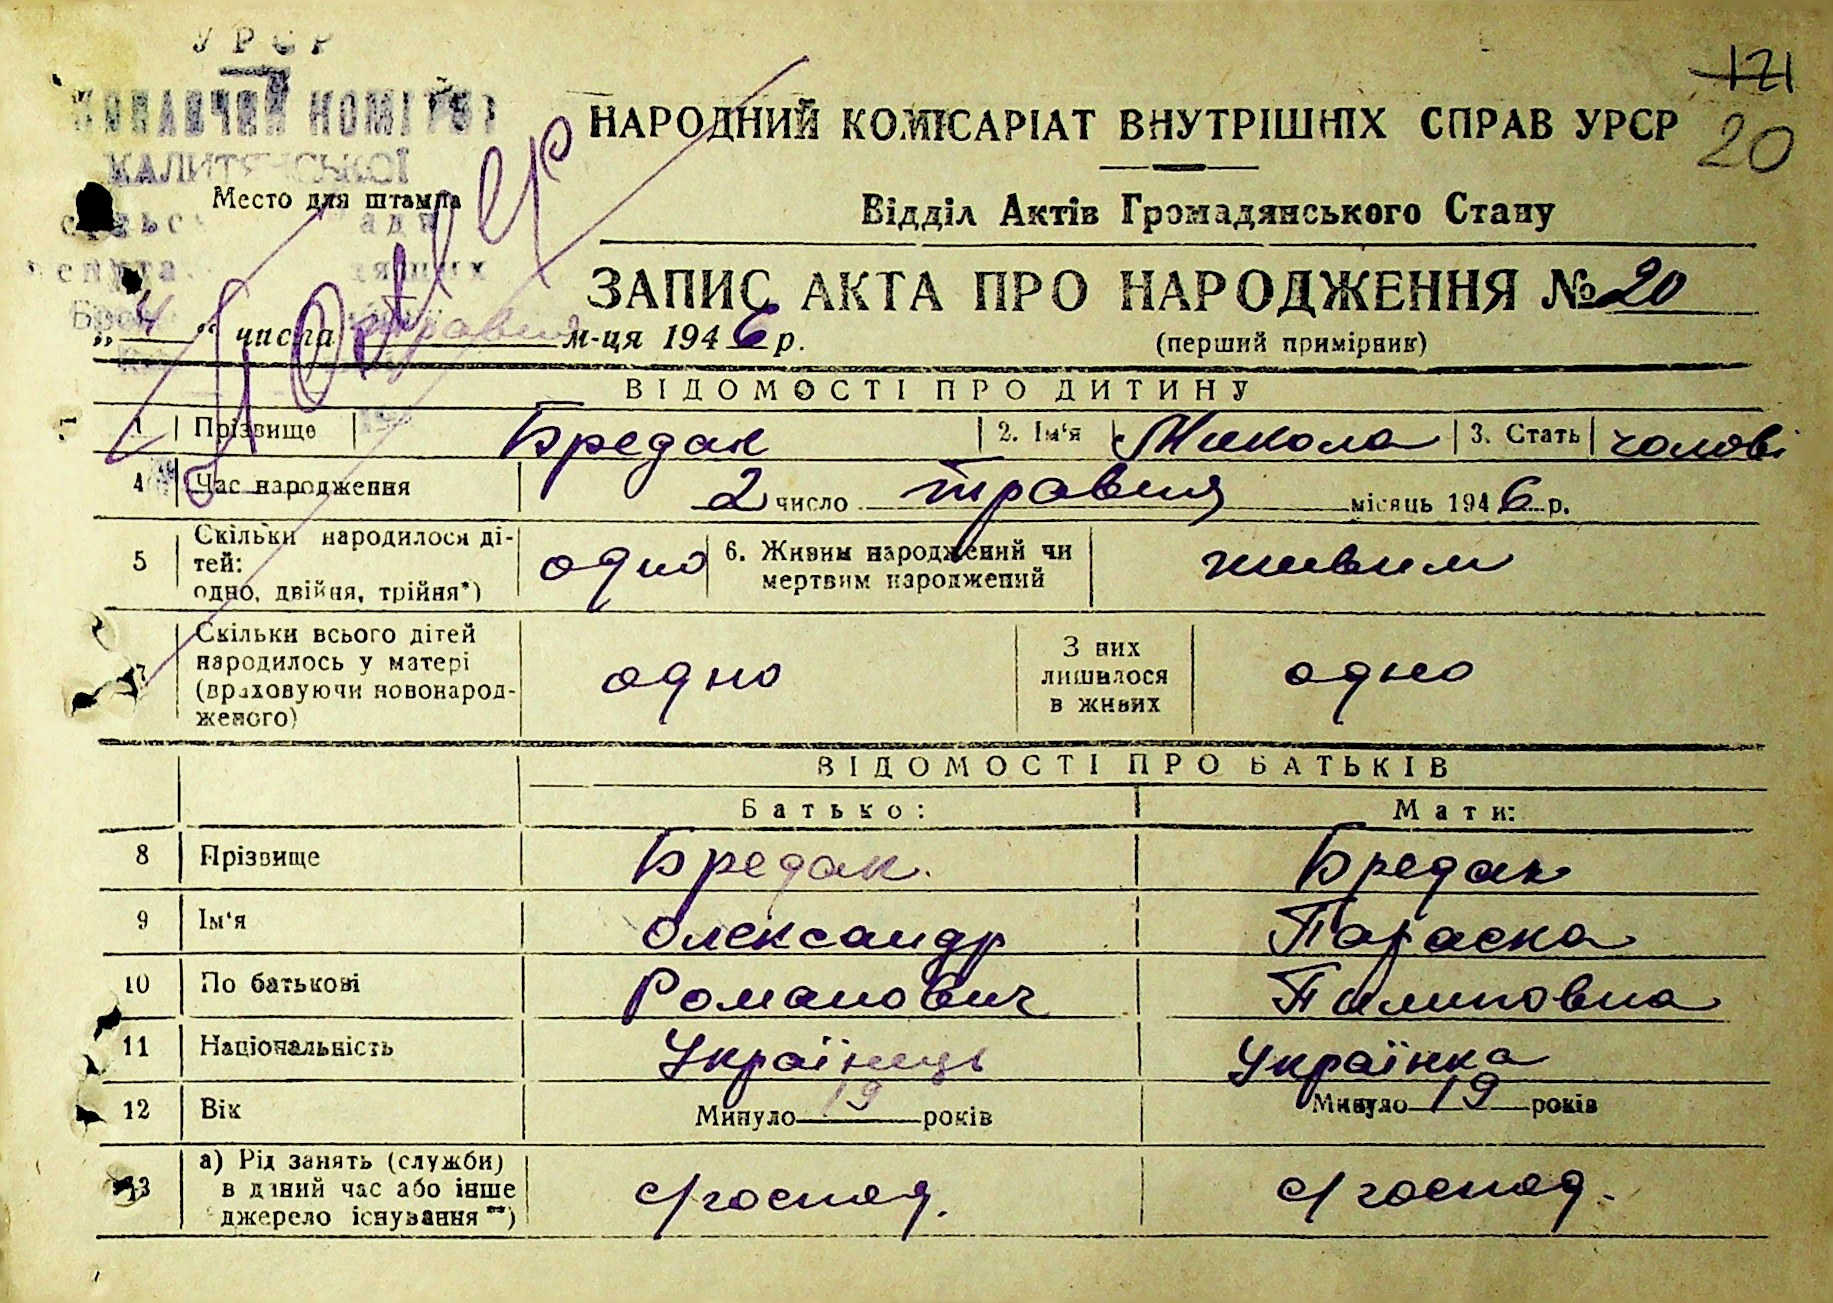 УРСР
КАЛИТЯНСЬКОЇ
Место для штампа
121
20
НАРОДНИЙ КОМІСАРІАТ ВНУТРІШНІХ СПРАВ УРСР
Відділ Актів Громадянського Стану
ЗАПИС АКТА ПРО НАРОДЖЕННЯ № 20
(перший примірник)
„ 4 “ числа травня м-ця 1946 р.
ВІДОМОСТІ ПРО ДИТИНУ
1 Прізвище Бредак 2. Ім‘я Микола 3. Стать чолові
4 Час народження 2 число травня місяць 1946 р.
5 Скільки народилося ді-
тей:
одно, двійня, трійня*) одно 6. Живим народжений чи
мертвим народжений живим
7 Скільки всього дітей
народилось у матері
(враховуючи новонарод-
женого) одно З них
лишилося
в живих одно
ВІДОМОСТІ ПРО БАТЬКІВ
Батько: Мати:
8 Прізвище Бредак. Бредак
9 Ім‘я Олександр Параска
10 По батькові Романович Пилиповна
11 Національність Українець Українка
12 Вік Минуло 19 років Минуло 19 років
13 а) Рід занять (служби)
в даний час або інше
джерело існування**) с/господ. с/господ.